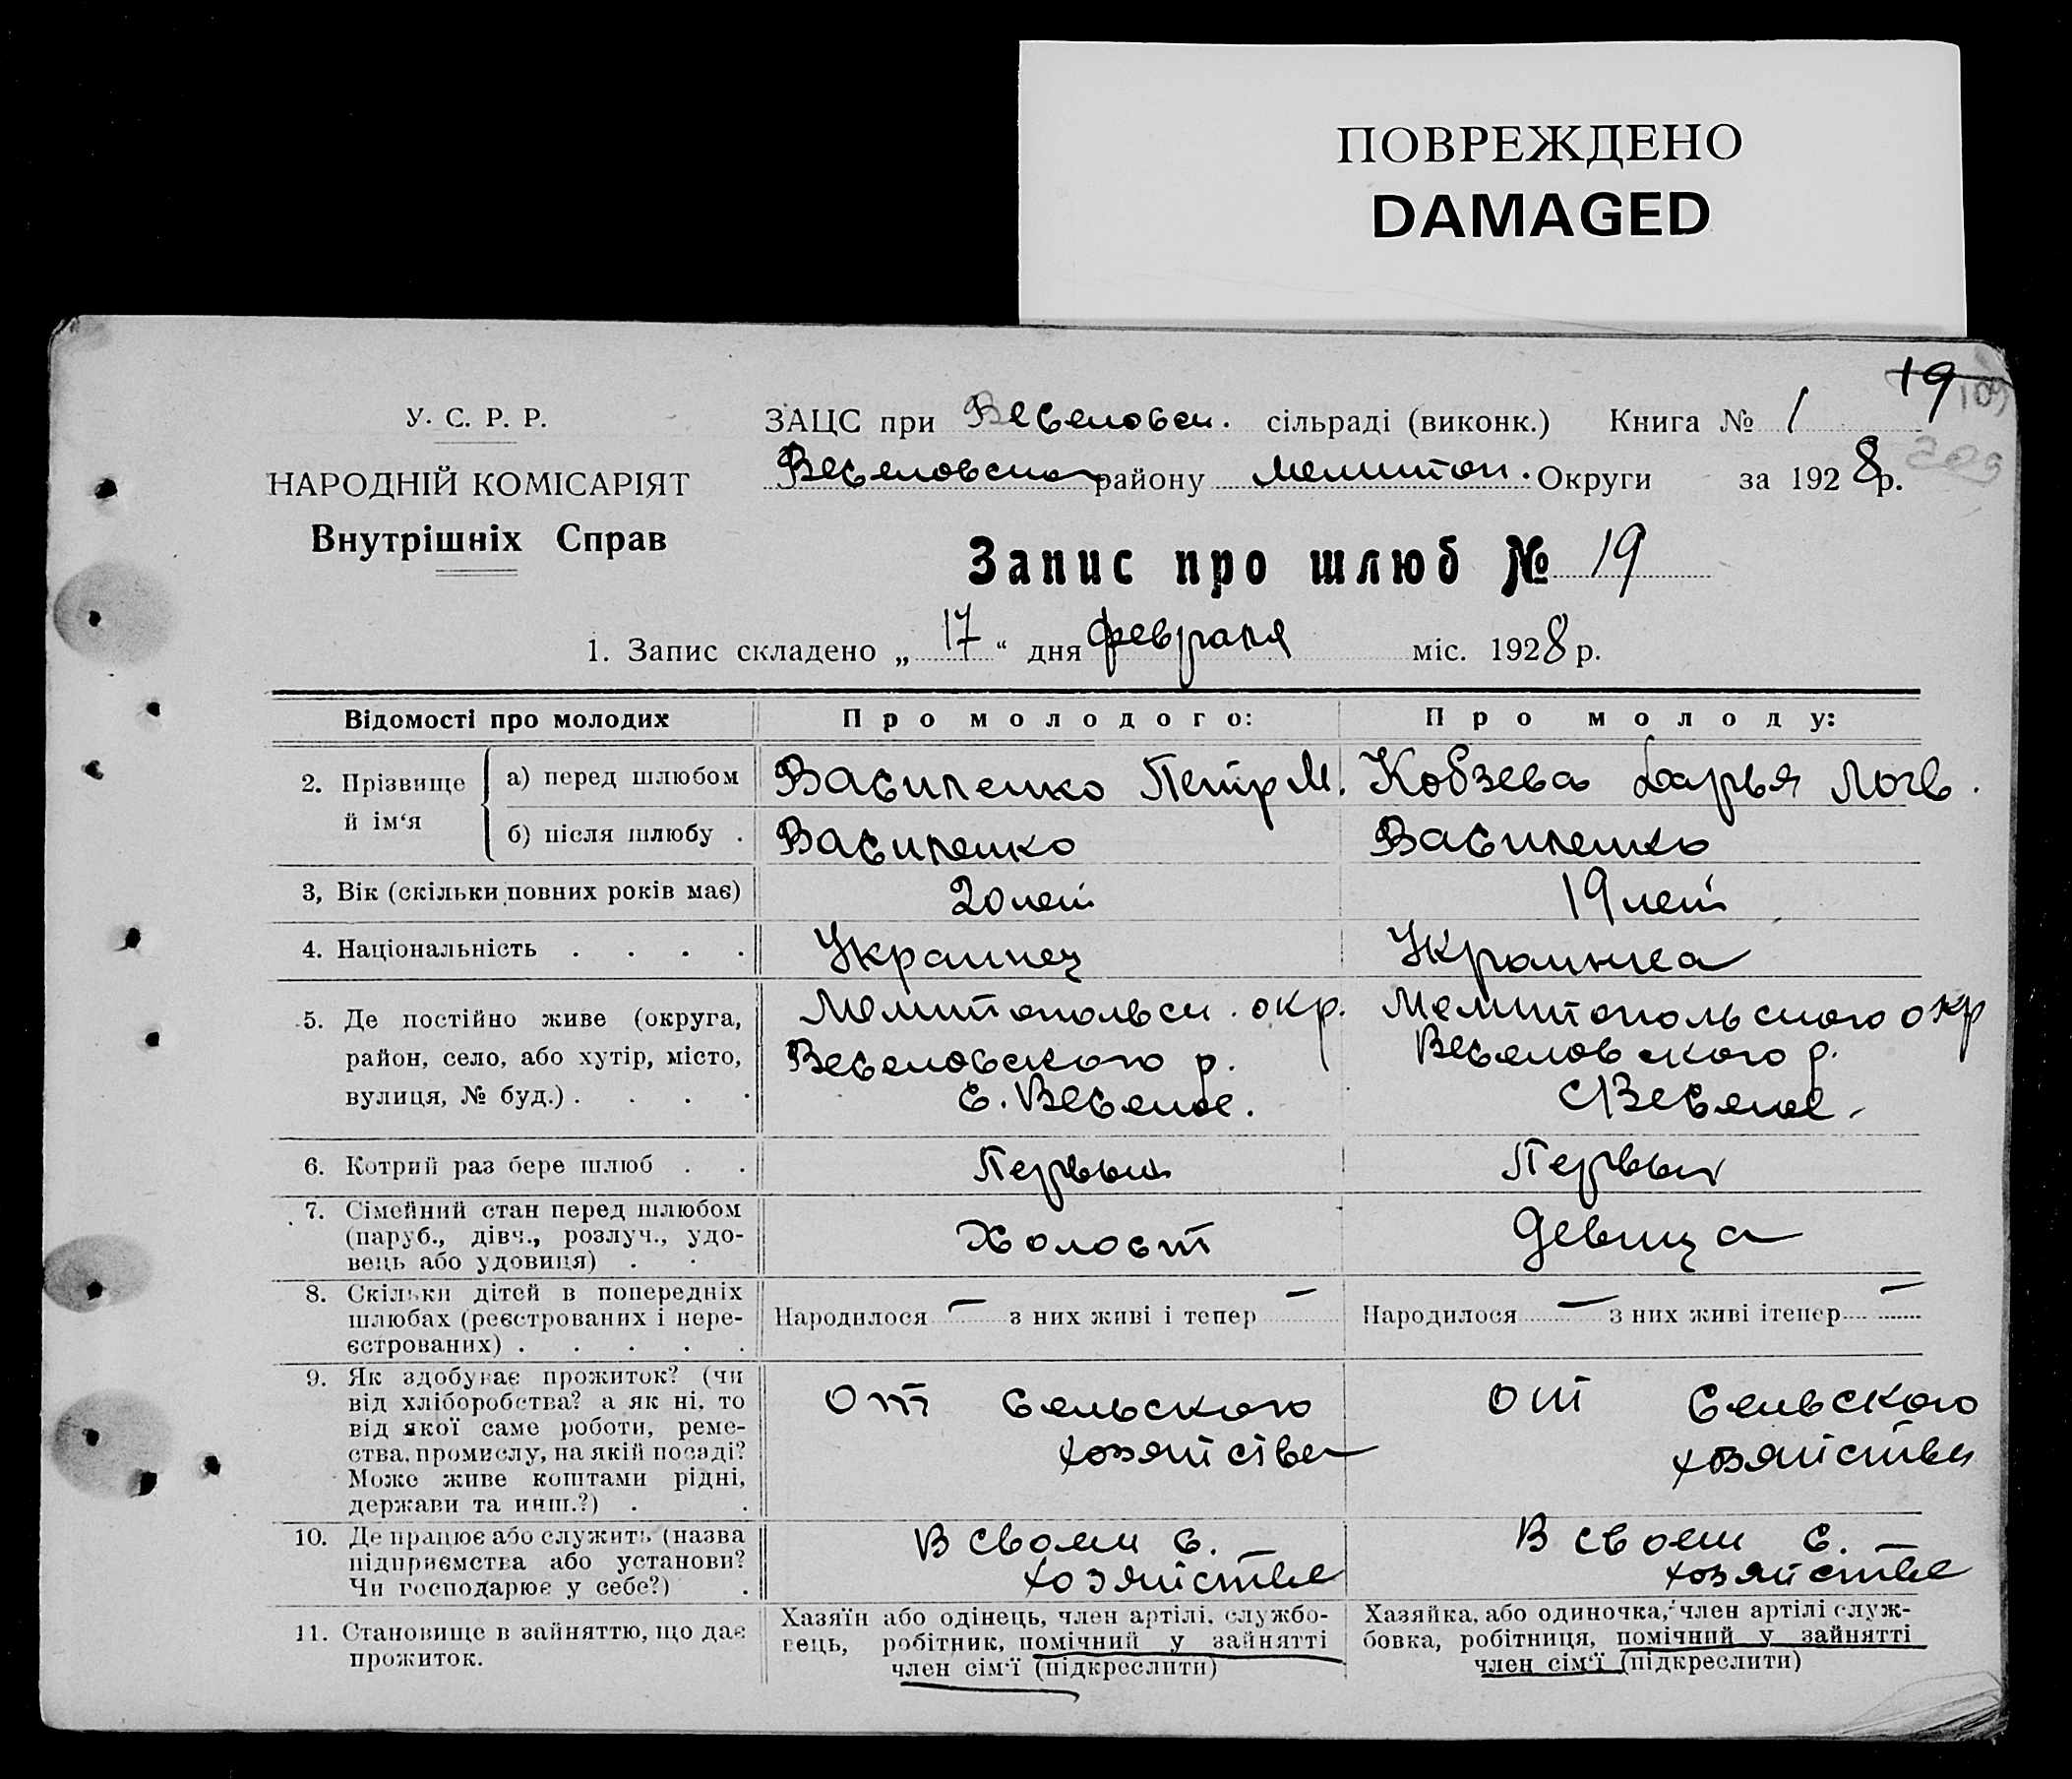 ПОВРЕЖДЕНО
DAMAGED
19
109
209
У. С. Р. Р.
НАРОДНІЙ КОМІСАРІЯТ
Внутрішніх Справ
ЗАЦС при Веселовск. сільраді (виконк.) Книга № 1
Веселовского району Мелитоп. Округи за 1928 р.
Запис про шлюб № 19
1. Запис складено „ 17 “ дня февраля міс. 1928 р.
Відомості про молодих
Про молодого:
Про молоду:
2. Прізвище й ім‘я
а) перед шлюбом
Василенко Петр М.
Кобзева Дарья Логв.
б) після шлюбу .
Василенко
Василенко
3, Вік (скільки повних років має)
20 лет
19 лет
4. Національність . . . .
Украинец
Украинка
5. Де постійно живе (округа,
район, село, або хутір, місто,
вулиця, № буд.) . . . .
Мелитопольск. окр.
Веселовского р.
с. Веселое.
Мелитопольского окр
Веселовского р.
с Веселое.
6. Котрий раз бере шлюб . .
Первый
Первый
7. Сімейний стан перед шлюбом
(паруб., дівч., розлуч., удо-
вець або удовиця) . .
Холост
Девица
8. Скільки дітей в попередніх
шлюбах (реєстрованих і нере-
єстрованих) . . . . .
Народилося — з них живі і тепер —
Народилося — з них живі ітепер —
9. Як здобуває прожиток? (чи
від хліборобства? а як ні, то
від якої саме роботи, реме-
ства, промислу, на якій посаді?
Може живе коштами рідні,
держави та инш.?) . .
от сельского
хозяйства
от сельского
хозяйства
10. Де працює або служить (назва
підприємства або установи?
Чи господарює у себе?) .
В своем с.
хозяйстве
В своем с.
хозяйстве
11. Становище в зайняттю, що дає
прожиток.
Хазяїн або одінець, член артілі, службо-
вець, робітник, помічний у зайнятті
член сім‘ї (підкреслити)
Хазяйка, або одиночка, член артілі служ-
бовка, робітниця, помічний у зайнятті
член сім‘ї (підкреслити)